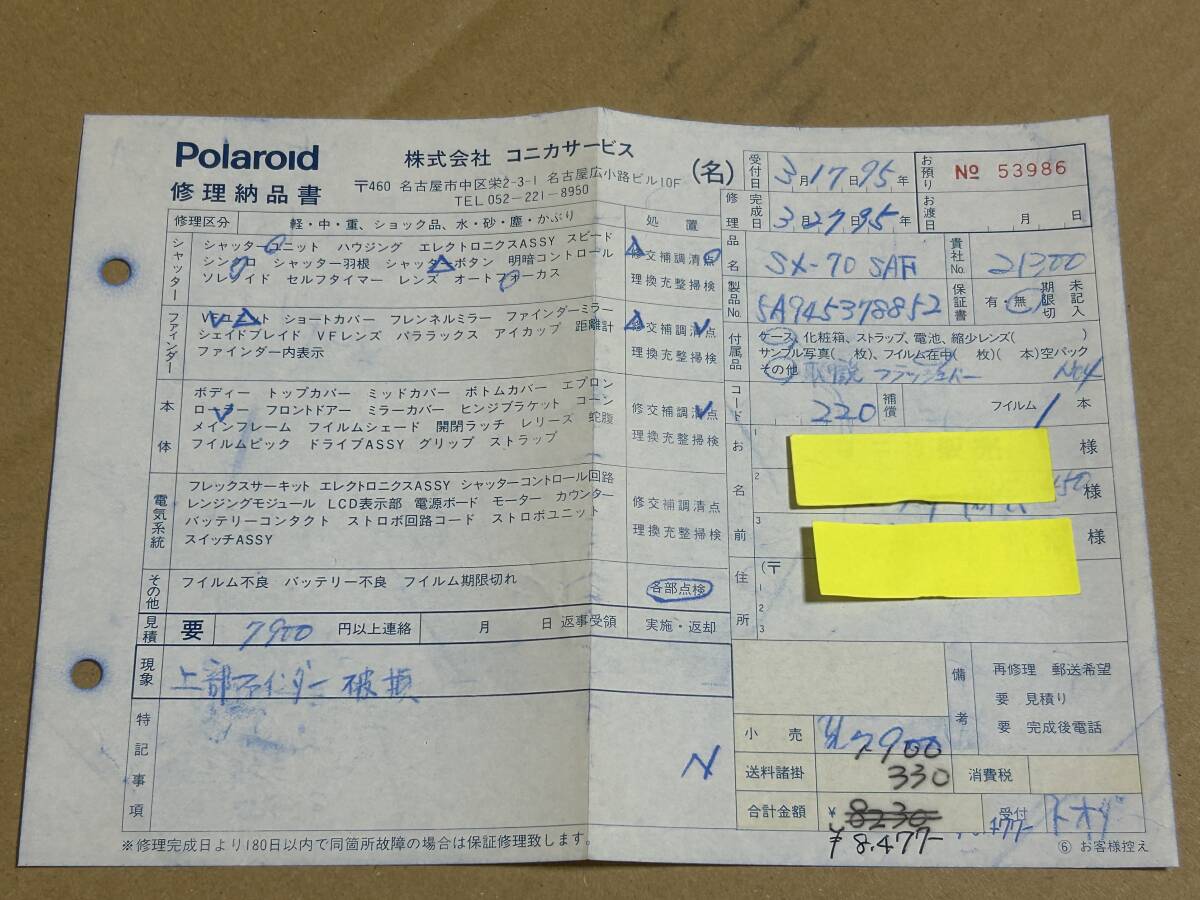 Polaroid
修理納品書
株式会社 コニカサービス
〒460 名古屋市中区栄2-3-1 名古屋広小路ビル10F
TEL 052-221-8950
(名)
受付日 3月17日95年
修理完成日 3月27日95年
お預り No 53986
お渡日 月 日
修理区分 軽・中・重、ショック品、水・砂・塵・かぶり 処置
シャッター
シャッターユニット ハウジング エレクトロニクスASSY スピード
シンクロ シャッター羽根 シャッターボタン 明暗コントロール
ソレノイド セルフタイマー レンズ オートフォーカス
修交補調清点
理換充整掃検
ファインダー
VFユニット ショートカバー フレンネルミラー ファインダーミラー
シェイドブレイド VFレンズ パララックス アイカップ 距離計
ファインダー内表示
修交補調清点
理換充整掃検
本体
ボディー トップカバー ミッドカバー ボトムカバー エプロン
ローラー フロントドアー ミラーカバー ヒンジブラケット コーン
メインフレーム フイルムシェード 開閉ラッチ レリーズ 蛇腹
フイルムピック ドライブASSY グリップ ストラップ
修交補調清点
理換充整掃検
電気系統
フレックスサーキット エレクトロニクスASSY シャッターコントロール回路
レンジングモジュール LCD表示部 電源ボード モーター カウンター
バッテリーコンタクト ストロボ回路コード ストロボユニット
スイッチASSY
修交補調清点
理換充整掃検
その他 フイルム不良 バッテリー不良 フイルム期限切れ 各部点検
見積 要 7900 円以上連絡 月 日 返事受領 実施・返却
現象 上部ファインダー破損
特記事項
N
※修理完成日より180日以内で同箇所故障の場合は保証修理致します。
品名 SX-70 SAF
貴社No. 21300
製品No. 5A945378852
保証書 有・無 期限切 未記入
付属品 ケース、化粧箱、ストラップ、電池、縮少レンズ( )
サンプル写真( 枚)、フイルム在中( 枚)( 本)空パック
その他 取説 フラッシュバー
コード 220 補償 フイルム 1 本
お名前
1 様
2 様
3 様
住所 (〒
1
2
3
備考
再修理 郵送希望
要 見積り
要 完成後電話
小売 7900
送料諸掛 330 消費税
合計金額 ¥8230
¥8,477-
受付
⑥ お客様控え